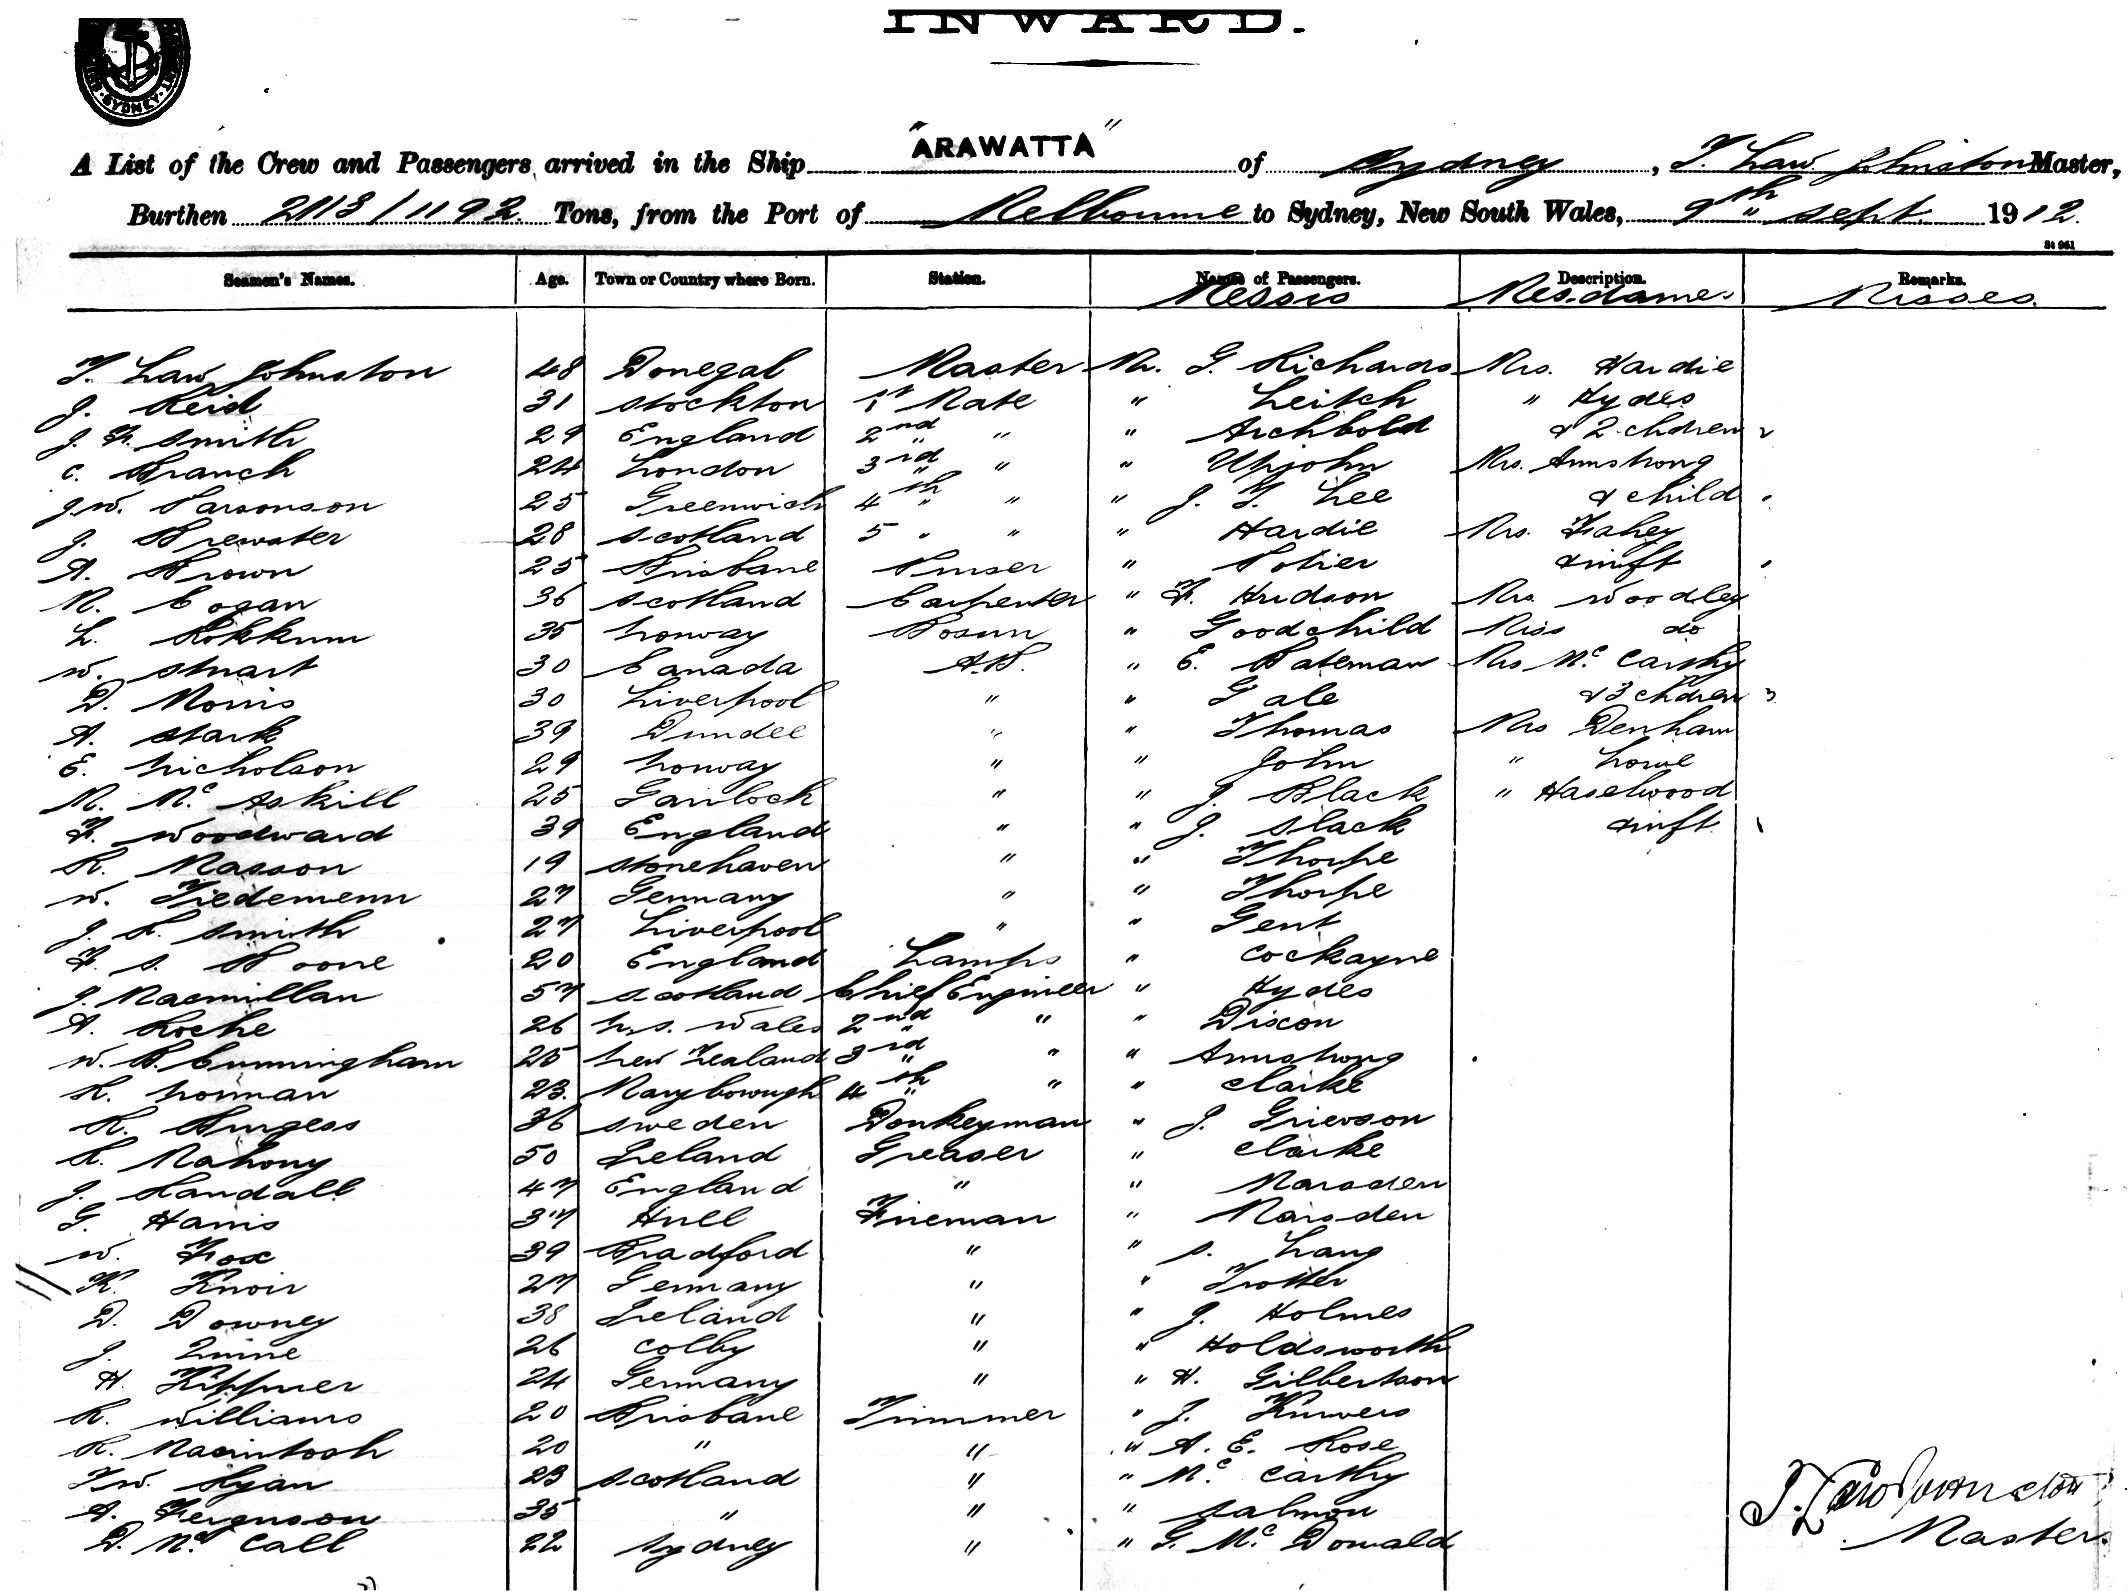 INWARD.
SYDNEY
A List of the Crew and Passengers arrived in the Ship "ARAWATTA" of Sydney, T. Law Johnston Master,
Burthen 2113/1192. Tons, from the Port of Melbourne to Sydney, New South Wales, 9th Sept. 1912.
St 961
Seamen's Names. Age. Town or Country where Born. Station. Names of Passengers. Description. Remarks.
Messrs Mesdames Misses.
T. Law Johnston 48 Donegal Master Mr. G. Richards Mrs. Hardie
J. Reid 31 Stockton 1st Mate " Leitch " Hydes
J. F. Smith 29 England 2nd " " Archbold & 2 chdren 2
C. Branch 24 London 3rd " " Upjohn Mrs. Armstrong
J. W. Parsonson 25 Greenwich 4th " " J. G. Lee & child
J. Brewster 28 Scotland 5 " " " Hardie Mrs. Fahey
A. Brown 25 Brisbane Purser " Potier & inft
M. Cogan 36 Scotland Carpenter " F. Hudson Mrs Woodley
L. Rokkum 35 Norway Bosun " Goodchild Miss do
W. Stuart 30 Canada A.B. " E. Bateman Mrs McCarthy
D. Morris 30 Liverpool " " Gale & 3 chdren 3
A. Stark 39 Dundee " " Thomas Mrs Denham
E. Nicholson 29 Norway " " John " Lowe
M. McAskill 25 Garloch " " J. Black " Haselwood
F. Woodward 39 England " " J. Slack & inft.
R. Masson 19 Stonehaven " " Thorpe
W. Tiedemenn 27 Germany " " Thorpe
J. R. Smith 27 Liverpool " " Gent
F. S. Boone 20 England Lamps " Cockayne
J. Macmillan 57 Scotland Chief Engineer " Hydes
A. Roche 26 N.S. Wales 2nd " " Dixon
W. B. Cunningham 25 New Zealand 3rd " " Armstrong
R. Norman 23. Maryborough 4th " " Clarke
R. Burgess 36 Sweden Donkeyman " J. Grierson
R. Mahony 50 Ireland Greaser " Clarke
J. Randall 47 England " " Marsden
G. Harris 37 Hull Fireman " Marsden
W. Fox 39 Bradford " " S. Lang
K. Knoir 27 Germany " " Trotter
D. Downey 38 Ireland " " J. Holmes
J. Quine 26 Colby " " Holdsworth
H. Kippner 24 Germany " " H. Gilbertson
R. Williams 20 Brisbane Trimmer " J. Kurvers
R. Macintosh 20 " " " A. E. Rose
T W. Ryan 23 Scotland " " McCarthy
A. Ferguson 35 " " " Salmon
D. McCall 22 Sydney " " G. McDonald
T. Law Johnston
Master.